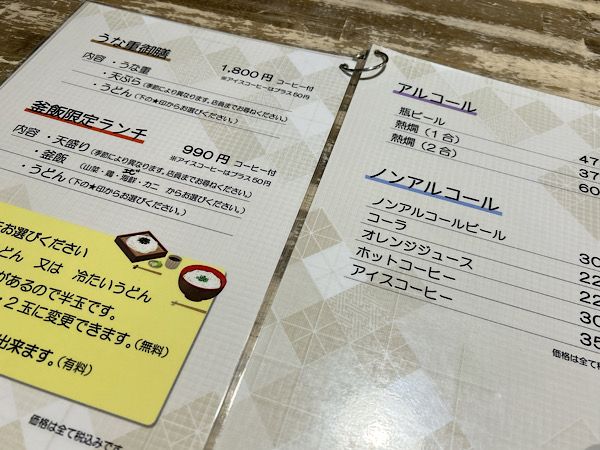 うな重御膳
1,800円 コーヒー付
内容 ・うな重
※アイスコーヒーはプラス50円
・天ぷら(季節により異なります。店員までお尋ねください。)
・うどん(下の★印からお選びください。)
釜飯限定ランチ
990円 コーヒー付
内容 ・天盛り(季節により異なります。店員までお尋ねください。)
※アイスコーヒーはプラス50円
・釜飯(山菜・鶏・海鮮・カニ からお選びください。)
・うどん(下の★印からお選びください。)
をお選びください
どん 又は 冷たいうどん
があるので半玉です。
・2玉に変更できます。(無料)
出来ます。(有料)
価格は全て税込みです
アルコール
瓶ビール 47
熱燗(1合) 37
熱燗(2合) 60
ノンアルコール
ノンアルコールビール 30
コーラ 22
オレンジジュース 22
ホットコーヒー 30
アイスコーヒー 35
価格は全て税